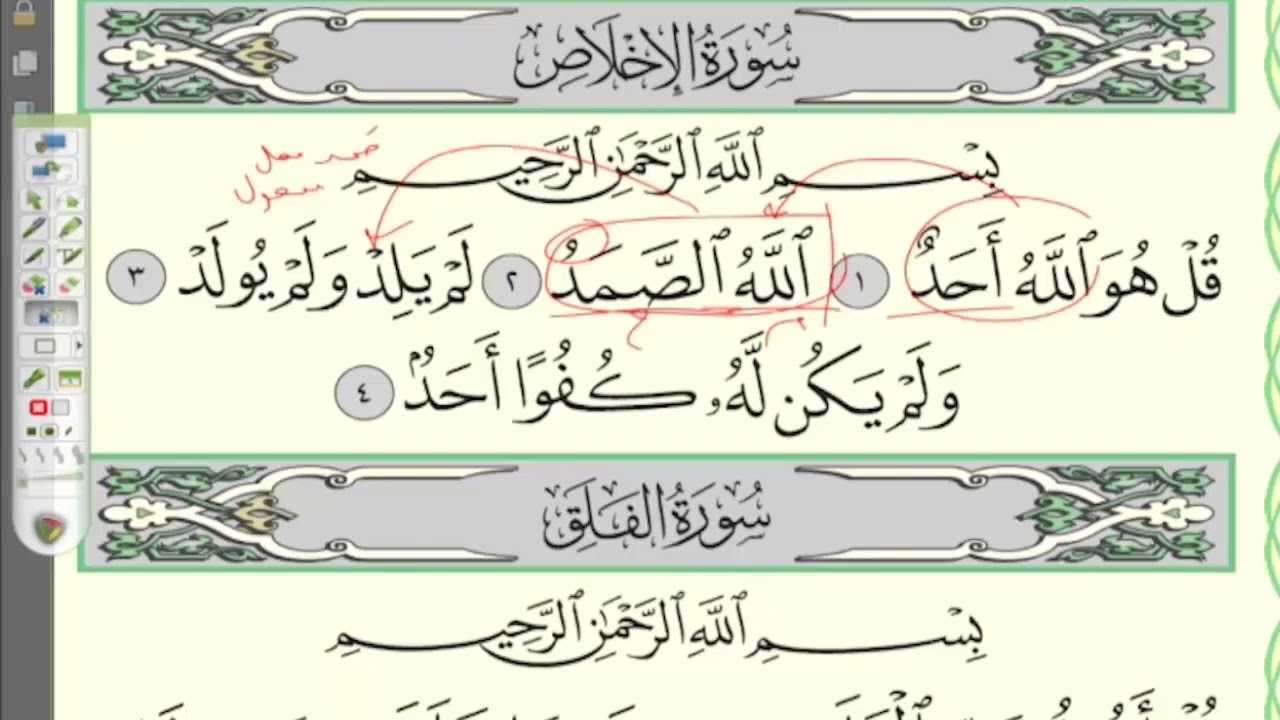 سُورَةُ الإِخْلَاصِ
بِسْمِ ٱللَّهِ ٱلرَّحْمَٰنِ ٱلرَّحِيمِ
قُلْ هُوَ ٱللَّهُ أَحَدٌ ١ ٱللَّهُ ٱلصَّمَدُ ٢ لَمْ يَلِدْ وَلَمْ يُولَدْ ٣
وَلَمْ يَكُن لَّهُۥ كُفُوًا أَحَدٌۢ ٤
سُورَةُ الفَلَقِ
بِسْمِ ٱللَّهِ ٱلرَّحْمَٰنِ ٱلرَّحِيمِ